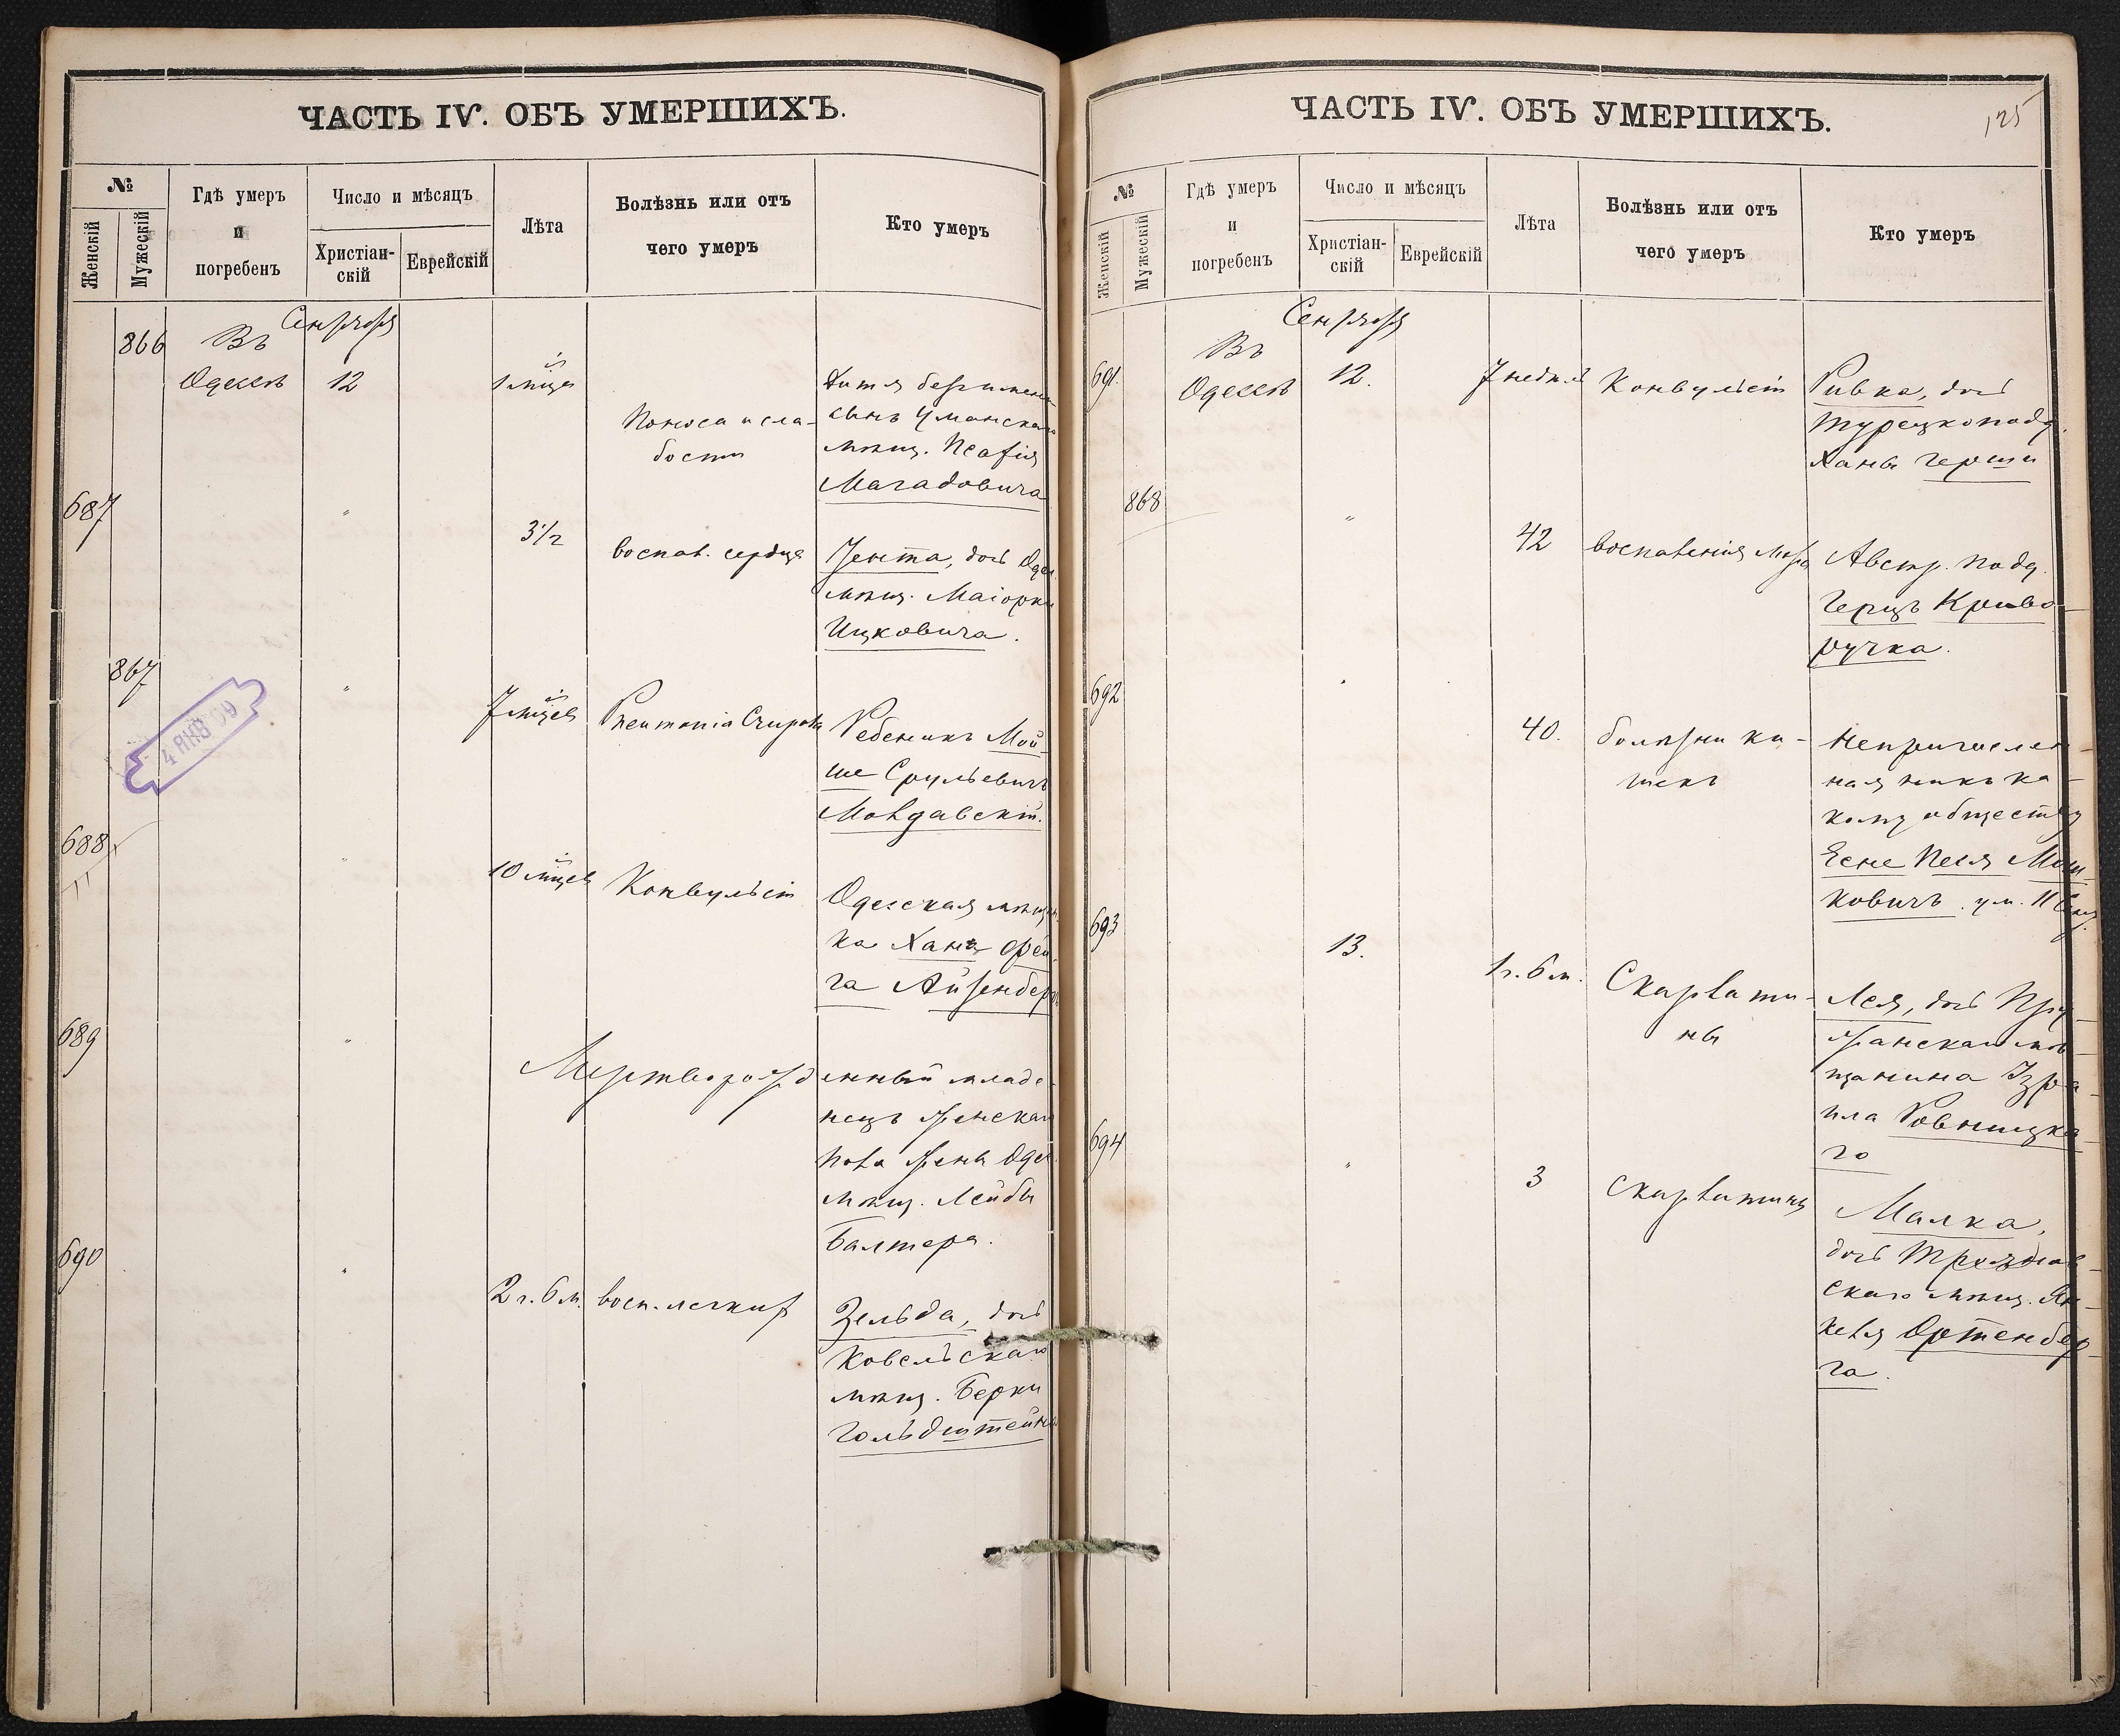 ЧАСТЬ IV. ОБЪ УМЕРШИХЪ.
№
Женскій
Мужескій
Гдѣ умеръ
и
погребенъ
Число и мѣсяцъ
Христіан-
скій
Еврейскій
Лѣта
Болѣзнь или отъ
чего умеръ
Кто умеръ
Сентября
866
Въ
Одессѣ
12
1 мѣца
Поноса и сла-
бости
Дитя безъимен
сынъ Уманскаго
мѣщ.
Магадовича
687
"
3 1/2
воспал. сердца
Ента, дочь Одес.
мѣщ. Маіорки
Ицковича.
867
"
7 мѣцевъ
Pneumonia Cruposa
Ребенокъ Мой-
ше Срульевичъ
Молдавскій.
4 ЯНВ 09
688
"
10 мѣцевъ
Конвульсіи
Одесская мѣщан-
ка Хана Фей-
га Айзенберг
689
"
Мертворожденный младе-
нецъ женскаго
пола жены Одес.
мѣщ. Лейбы
Балтера.
690
"
2 г. 6 м.
восп. легкихъ
Зельда, дочь
Ковельскаго
мѣщ. Берки
Гольдштейна
ЧАСТЬ IV. ОБЪ УМЕРШИХЪ.
125
№
Женскій
Мужескій
Гдѣ умеръ
и
погребенъ
Число и мѣсяцъ
Христіан-
скій
Еврейскій
Лѣта
Болѣзнь или отъ
чего умеръ
Кто умеръ
Сентября
691.
Въ
Одессѣ
12.
7 недѣль
Конвульсіи
Ривка, дочь
Турецкоподд.
Ханы Герши
868
"
42
воспаленія мозга
Австр. подд.
Герцъ Криво-
ручка.
692
"
40.
болѣзни ки-
шекъ
Непричислен-
ная ни къ ка-
кому обществу
Бене Песя Мош-
ковичъ. ум. 11 Сент.
693
13.
1 г. 6 м.
Скарлати-
ны
Лея, дочь Пру-
жанскаго мѣ-
щанина Изра-
ила Ровницка-
го
694
"
3
Скарлатины
Малка,
дочь
скаго мѣщ. Ян-
келя Ортенбер-
га.